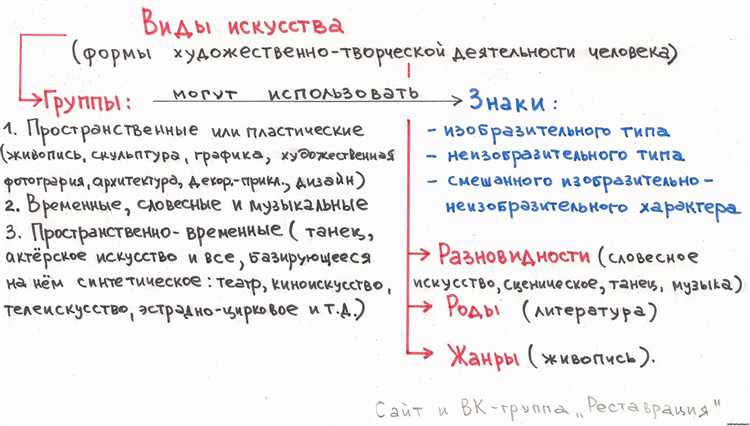 Виды искусства
(формы художественно-творческой деятельности человека)
Группы: могут использовать Знаки:
1. Пространственные или пластические
(живопись, скульптура, графика, художественная
фотография, архитектура, декор.-прикл., дизайн)
2. Временные, словесные и музыкальные
3. Пространственно-временные (танец,
актёрское искусство и все, базирующееся
на нём синтетическое: театр, киноискусство,
телеискусство, эстрадно-цирковое и т.д.)
- изобразительного типа
- неизобразительного типа
- смешанного изобразительно-
неизобразительного характера
Разновидности (словесное
искусство, сценическое, танец, музыка)
Роды (литература)
Жанры (живопись).
Сайт и ВК-группа „Реставрация"